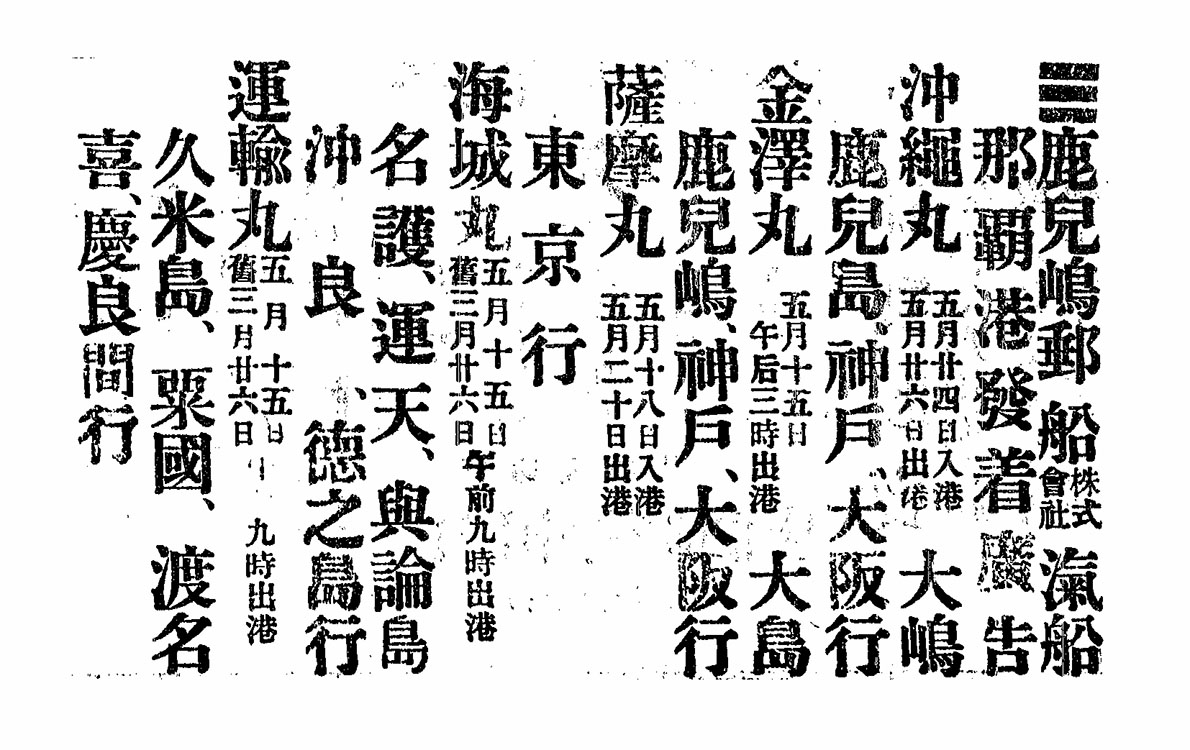 鹿兒嶋郵船株式會社汽船
那覇港發着廣告
沖繩丸 五月廿四日入港 五月廿六日出港 大嶋
鹿兒島、神戶、大阪行
金澤丸 五月十五日 午后三時出港 大島
鹿兒嶋、神戶、大阪行
薩摩丸 五月十八日入港 五月二十日出港
東京行
海城丸 五月十五日 舊三月廿六日 午前九時出港
名護、運天、與論島
沖良、德之島行
運輸丸 五月十五日 舊三月廿六日 九時出港
久米島、粟國、渡名
喜、慶良間行